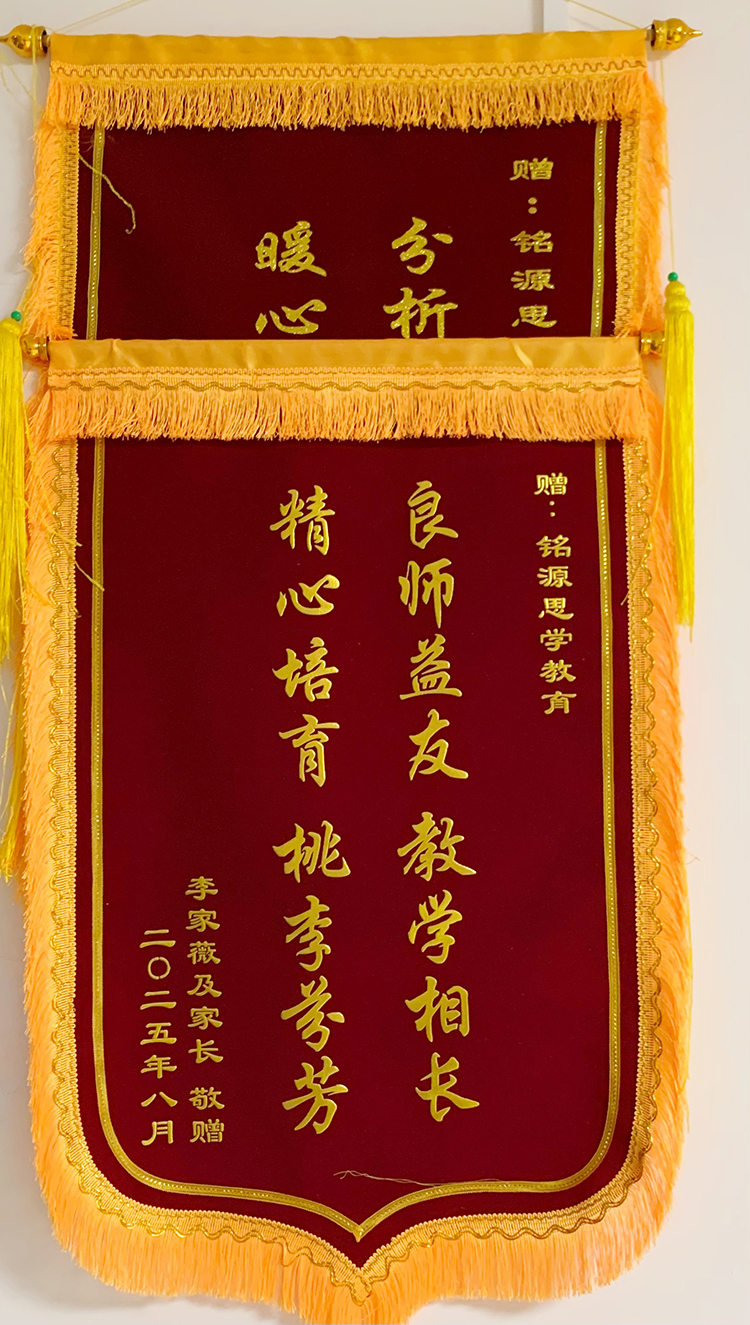 赠：铭源思
分析
暖心
赠：铭源思学教育
良师益友 教学相长
精心培育 桃李芬芳
李家薇及家长 敬赠
二〇二五年八月